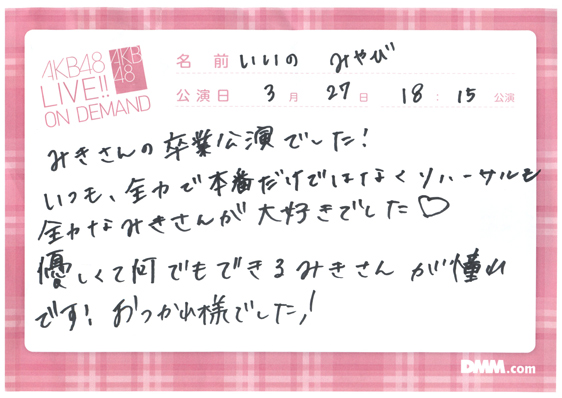 AKB48
LIVE!!
ON DEMAND
AKB
48
名前 いいの みやび
公演日 3月27日 18:15公演
みきさんの卒業公演でした!
いつも、全力で本番だけではなくリハーサルも
全力なみきさんが大好きでした♡
優しくて何でもできるみきさんが憧れ
です! おつかれ様でした!
DMM.com